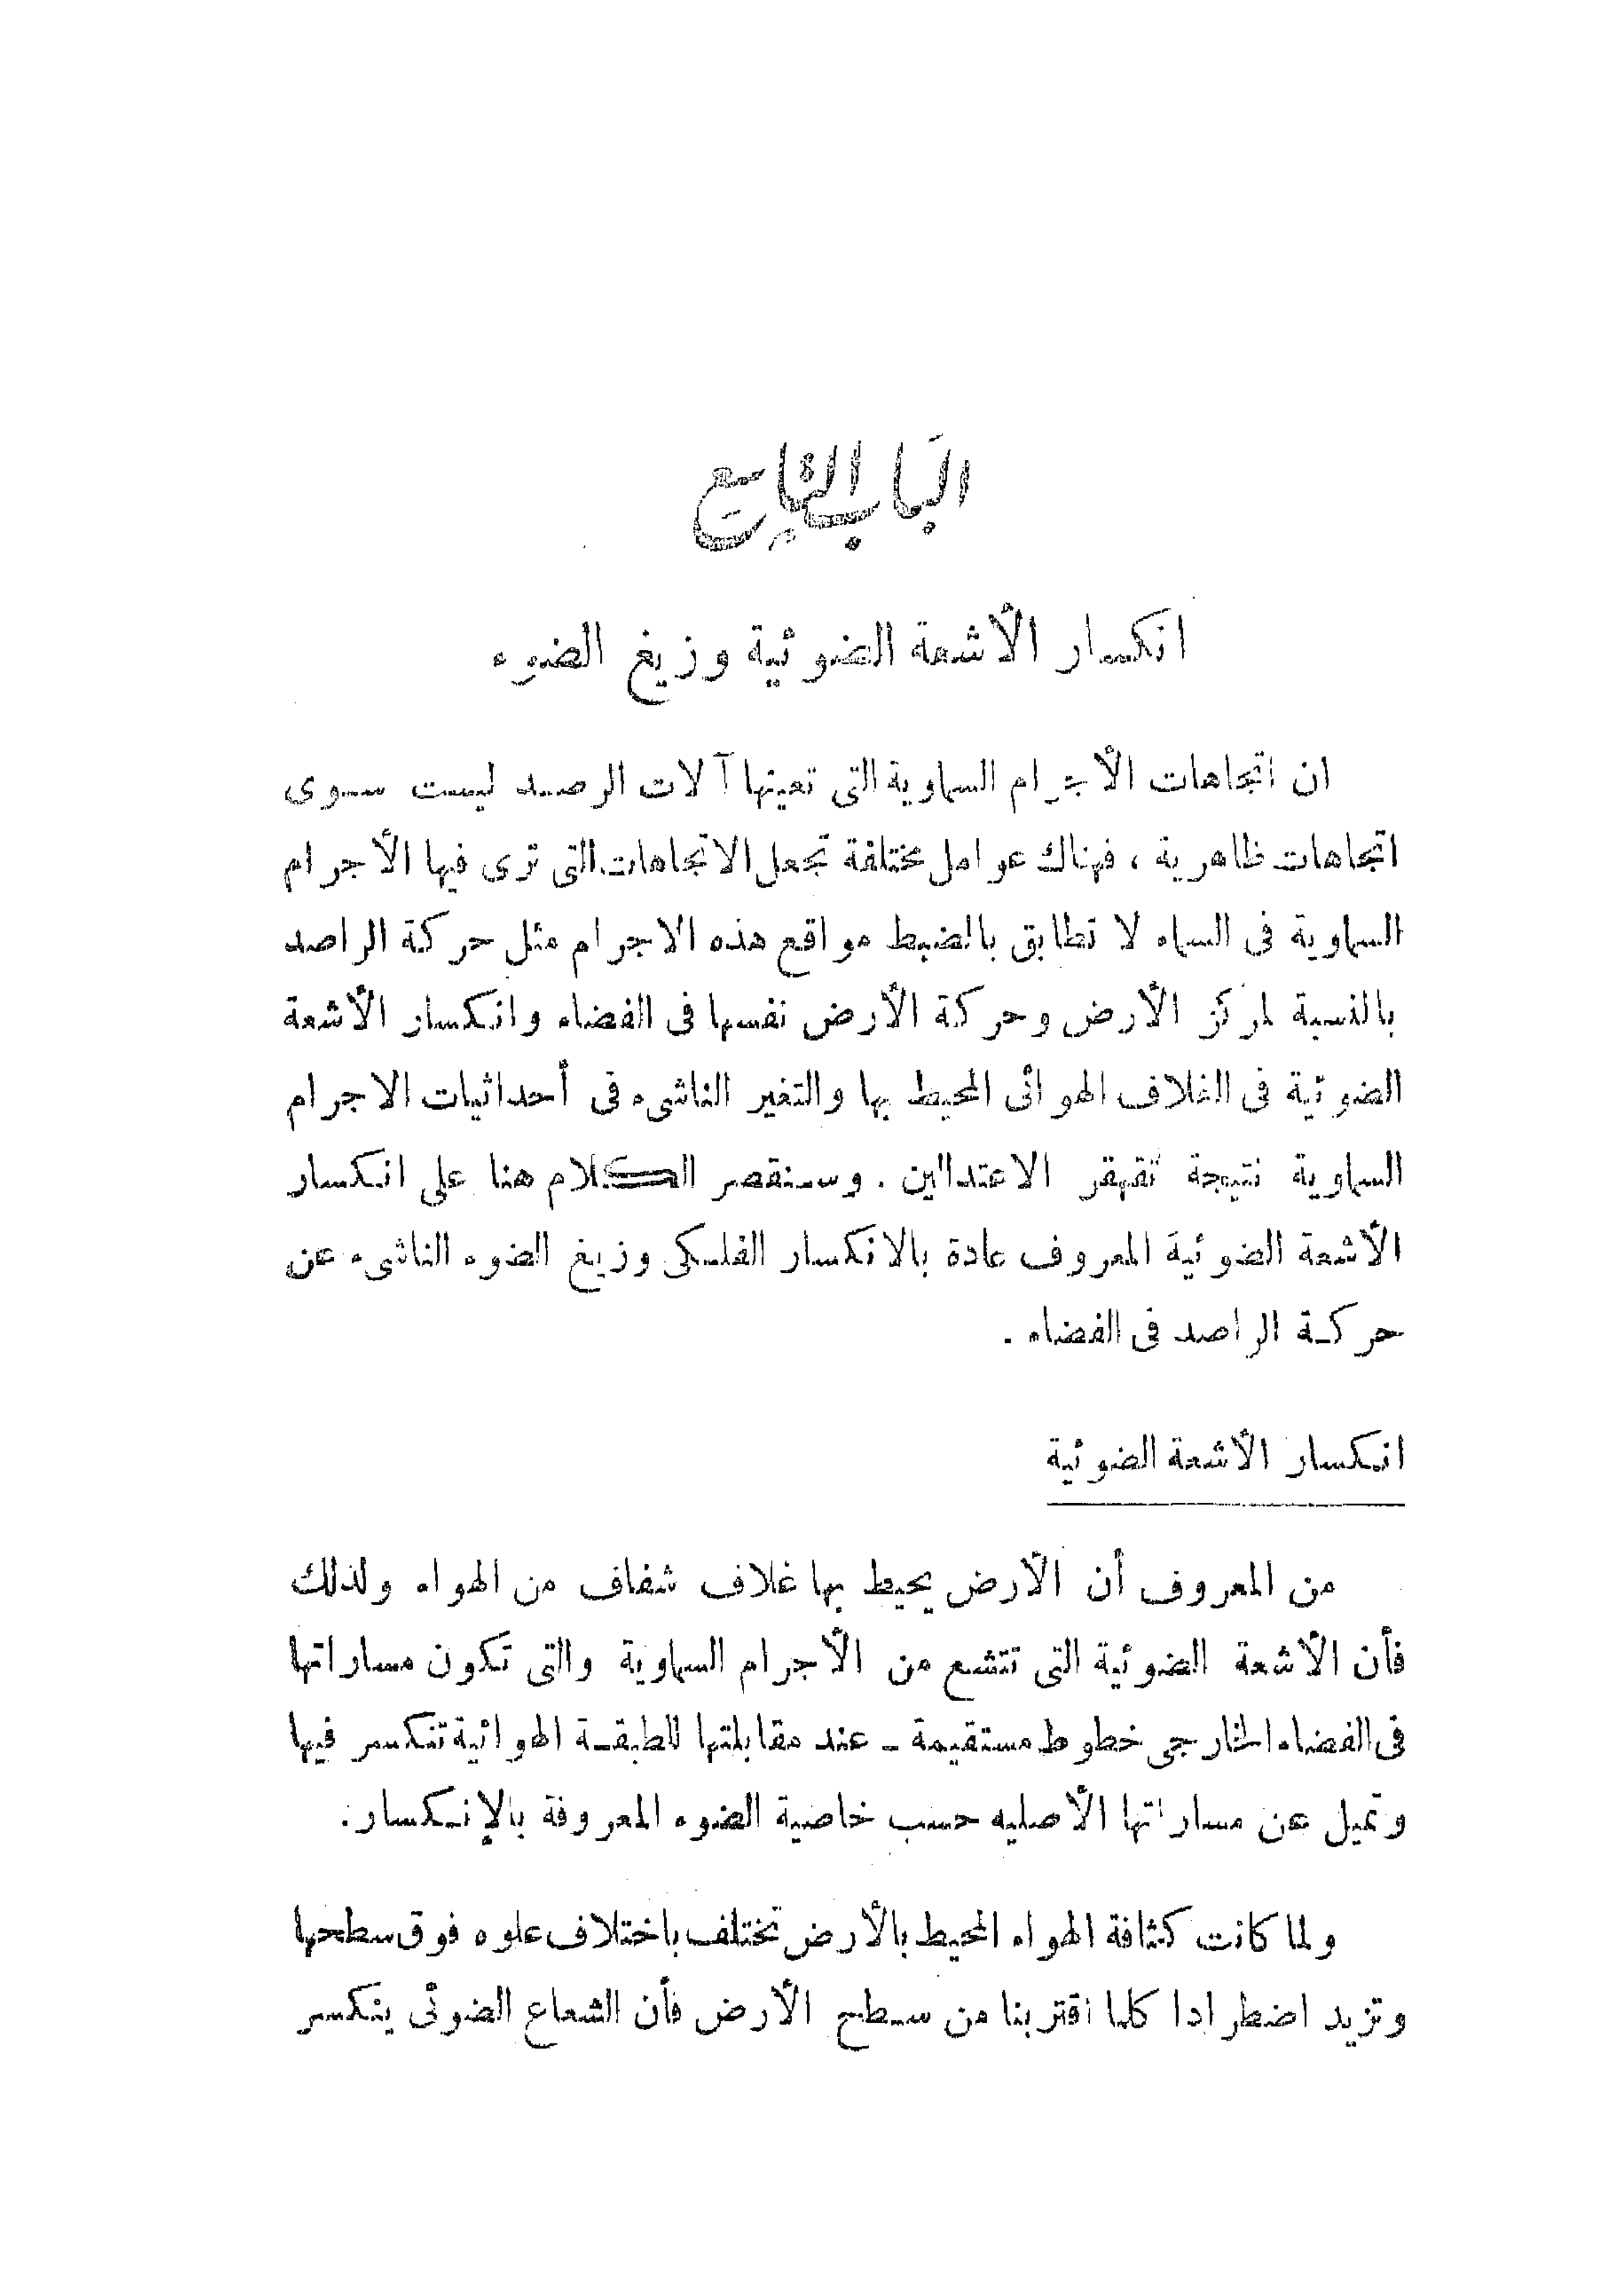 الباب التاسع
انكسار الأشعة الضوئية وزيغ الضوء
ان اتجاهات الأجرام السماوية التى تعينها آلات الرصد ليست سوى
اتجاهات ظاهرية ، فهناك عوامل مختلفة تجعل الاتجاهات التى ترى فيها الأجرام
السماوية فى السماء لا تطابق بالضبط مواقع هذه الاجرام مثل حركة الراصد
بالنسبة لمركز الأرض وحركة الأرض نفسها فى الفضاء وانكسار الأشعة
الضوئية فى الغلاف الهوائى المحيط بها والتغير الناشىء فى أحداثيات الاجرام
السماوية نتيجة تقهقر الاعتدالين . وسنقصر الكلام هنا على انكسار
الأشعة الضوئية المعروف عادة بالانكسار الفلكى وزيغ الضوء الناشىء عن
حركة الراصد فى الفضاء .
انكسار الأشعة الضوئية
من المعروف أن الأرض يحيط بها غلاف شفاف من الهواء ولذلك
فأن الأشعة الضوئية التى تتشع من الأجرام السماوية والتى تكون مساراتها
فى الفضاء الخارجى خطوط مستقيمة - عند مقابلتها للطبقة الهوائية تنكسر فيها
وتميل عن مساراتها الأصليه حسب خاصية الضوء المعروفة بالإنكسار.
ولما كانت كثافة الهواء المحيط بالأرض تختلف باختلاف علوه فوق سطحها
وتزيد اضطرادا كلما اقتربنا من سطح الأرض فأن الشعاع الضوئى ينكسر